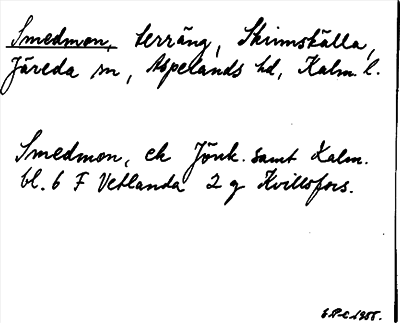 Smedmon, terräng, Skrimskälla,
Järeda sn, Aspelands hd, Kalm. l.
Smedmon, ek Jönk. samt Kalm.
bl. 6 F Vetlanda 2 g Kvillsfors.
E.P-e. 1955.